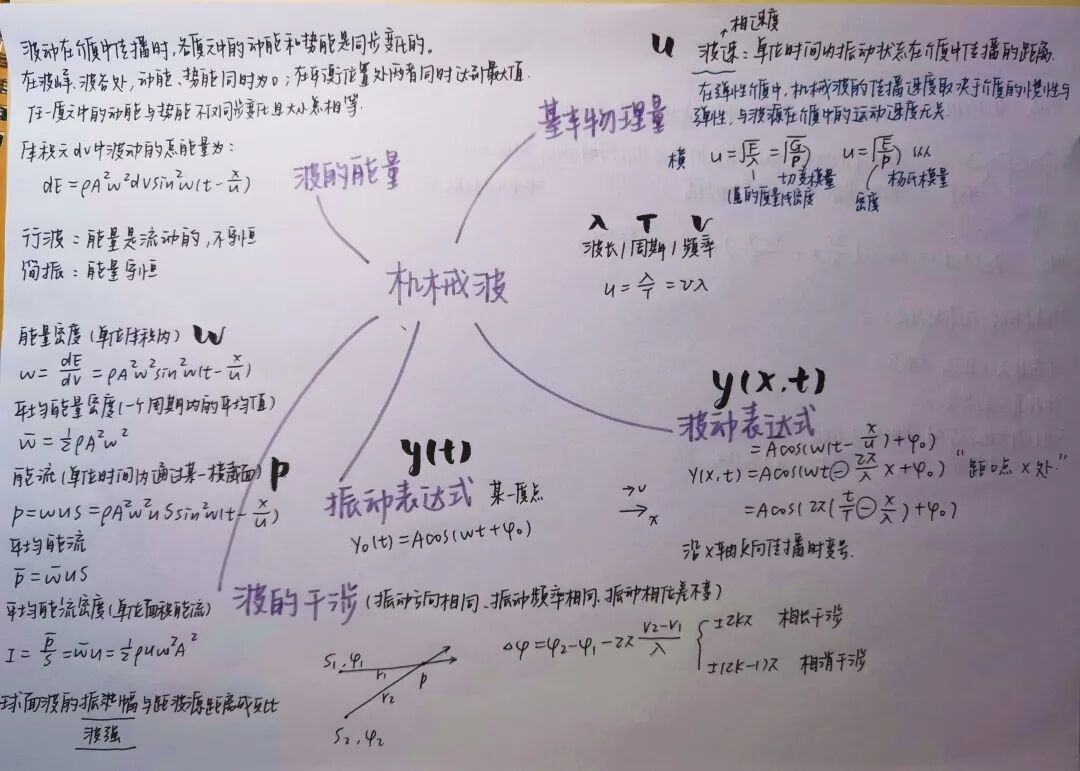 机械波
波的能量
波动在介质中传播时,各质元中的动能和势能是同步变化的。
在波峰、波谷处,动能、势能同时为0;在平衡位置处两者同时达到最大值.
任一质元中的动能与势能
同步变化且大小总相等.
体积元dv中波动的总能量为:
dE = ρA²w²dVsin²w(t - x/u)
行波:能量是流动的,不守恒
简振:能量守恒
能量密度(单位体积内) w
w = dE/dV = ρA²w²sin²w(t - x/u)
平均能量密度(一个周期内的平均值)
w̄ = ½ρA²w²
能流(单位时间内通过某一横截面) P
P = wuS = ρA²w²uSsin²w(t - x/u)
平均能流
P̄ = w̄uS
平均能流密度(单位面积能流)
I = P̄/S = w̄u = ½ρuw²A²
球面波的振幅与距波源距离成反比
波强
基本物理量
u
相速度
波速:单位时间内振动状态在介质中传播的距离.
在弹性介质中,机械波的传播速度取决于介质的惯性与
弹性,与波源在介质中的运动速度无关.
横 u = √(F/λ) = √(G/ρ) u = √(E/ρ) 纵
切变模量 杨氏模量
质量线密度 密度
λ T ν
波长/周期/频率
u = λ/T = νλ
y(x,t)
波动表达式
= Acos(w(t - x/u) + φ₀)
Y(x,t) = Acos(wt ⊖ 2π/λ x + φ₀) “距O点x处”
= Acos(2π(t/T ⊖ x/λ) + φ₀)
沿x轴反向传播时变号.
→υ
→x
y(t)
振动表达式 某一质点
Y₀(t) = Acos(wt + φ₀)
波的干涉 (振动方向相同、振动频率相同、振动相位差不变)
S₁,φ₁
r₁
r₂
P
S₂,φ₂
△φ = φ₂ - φ₁ - 2π (r₂ - r₁)/λ { ±2kπ 相长干涉
±(2k-1)π 相消干涉